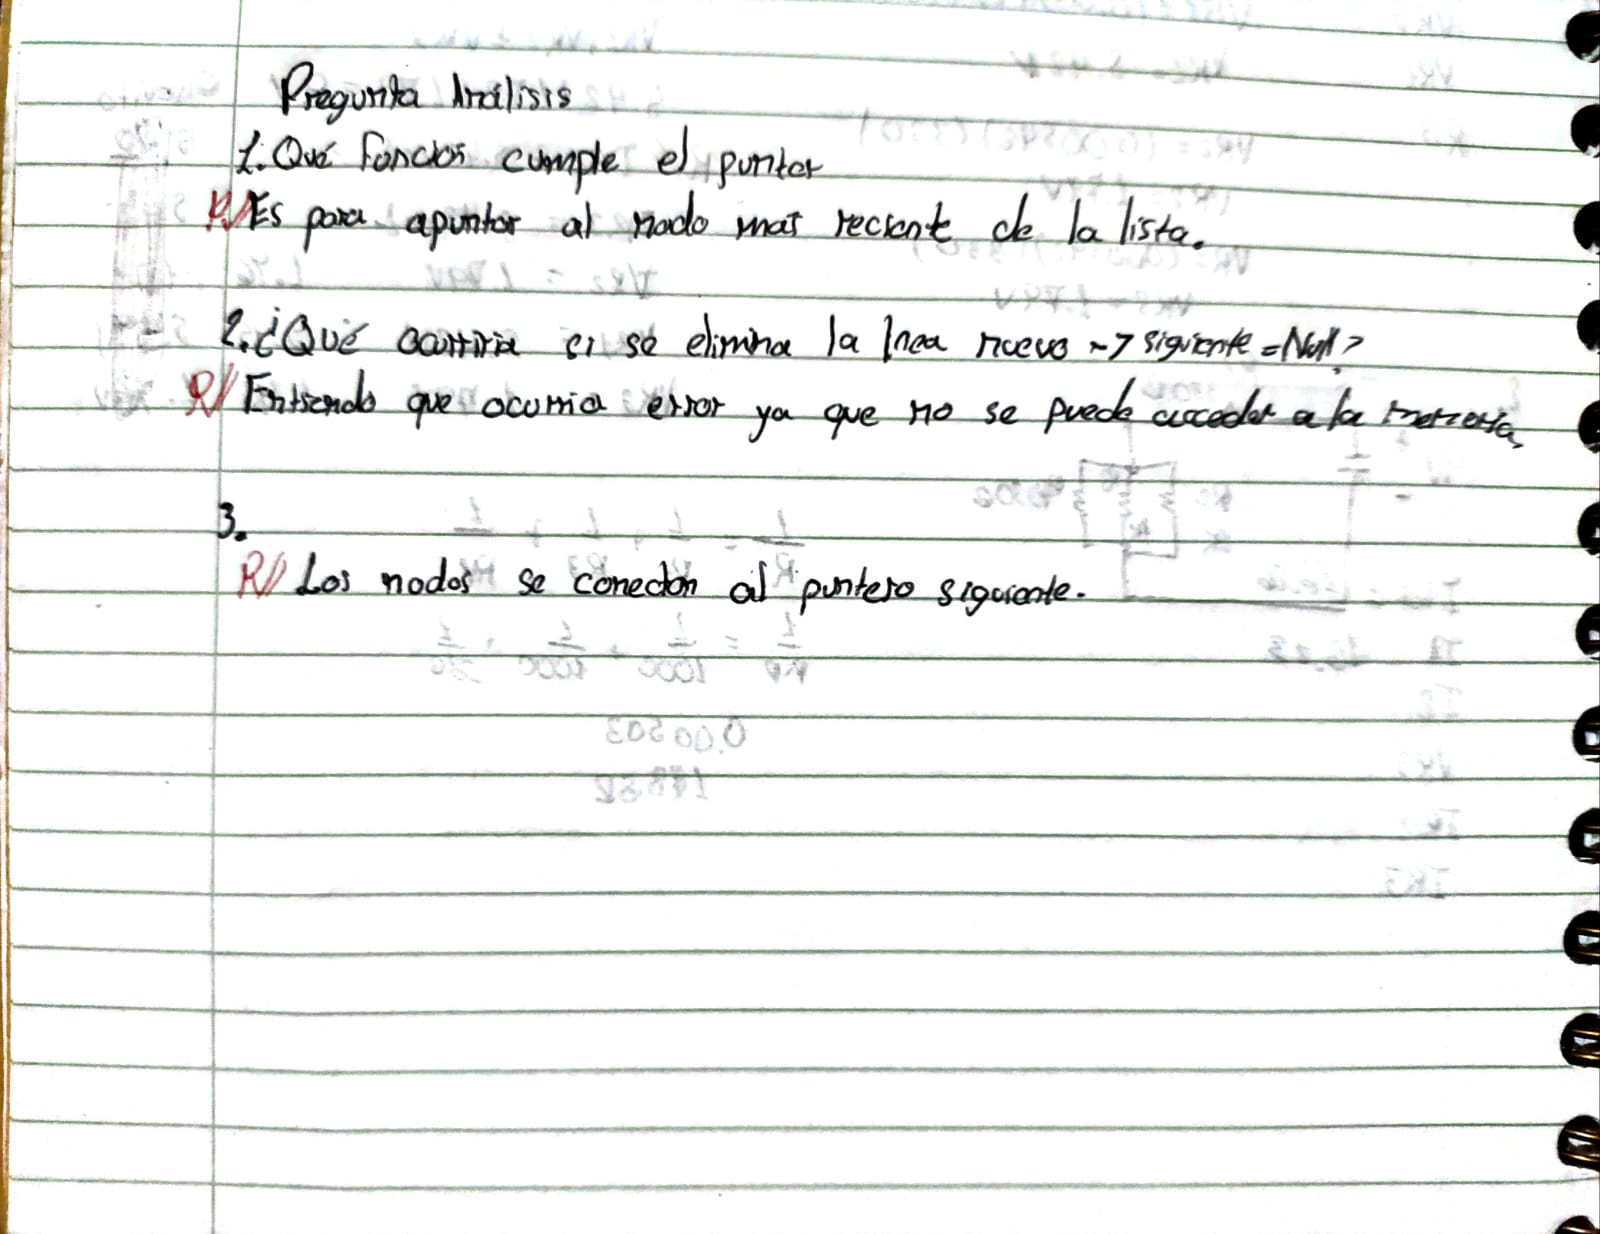 Pregunta Análisis
1. Qué función cumple el punter
R// Es para apuntar al nodo mas reciente de la lista.
2. ¿Qué ocurriria si se elimina la linea nuevo -> siguiente = Null?
R// Entiendo que ocurria error ya que no se puede acceder a la memoria
3.
R// Los nodos se conectan al puntero siguiente.